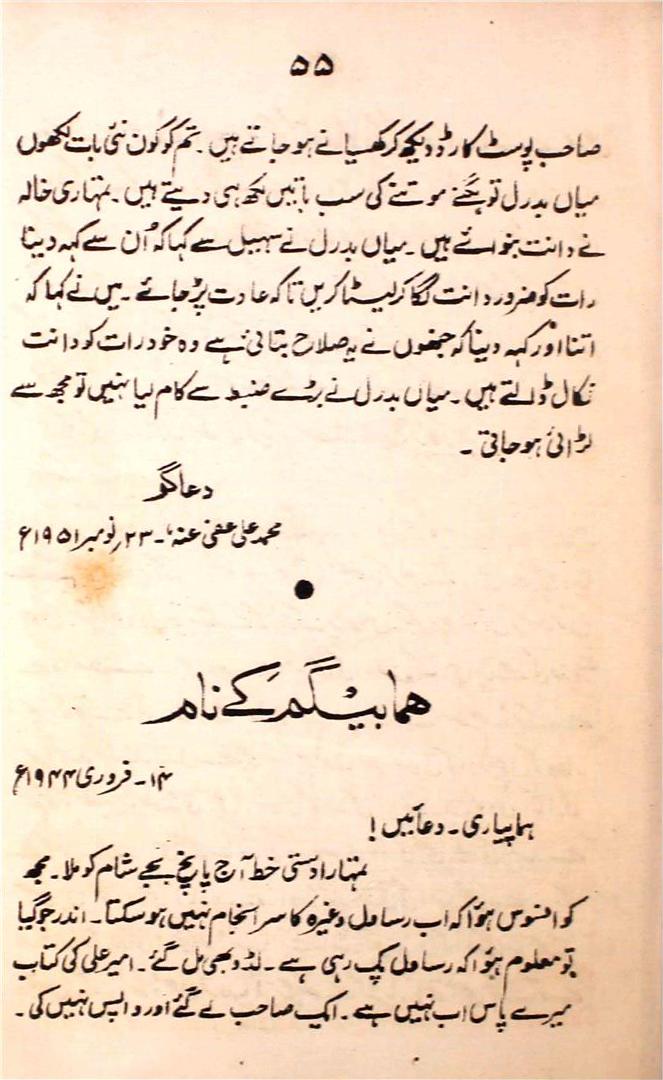 ۵۵
صاحب پوسٹ کارڈ دیکھ کر کھسیانے ہو جاتے ہیں ۔ تم کو کون نئی بات لکھوں
میاں بدرل تو ہگنے موتنے کی سب باتیں لکھ ہی دیتے ہیں ۔ تمہاری خالہ
نے دانت بنوائے ہیں ۔ میاں بدرل نے سہیل سے کہا کہ اُن سے کہہ دینا
رات کو ضرور دانت لگا کر لیٹا کریں تاکہ عادت پڑ جائے ۔ میں نے کہا کہ
اتنا اور کہہ دینا کہ جنھوں نے یہ صلاح بتائی ہے وہ خود رات کو دانت
نکال ڈالتے ہیں ۔ میاں بدرل نے بڑے ضبط سے کام لیا نہیں تو مجھ سے
لڑائی ہو جاتی ۔
دعا گو
محمد علی عفی عنہ ۔ ۲۳؍ نومبر ۱۹۵۱ء
ہما بیگم کے نام
۱۴ ۔ فروری ۱۹۴۴ء
ہما پیاری ۔ دعائیں !
تمہارا دستی خط آج پانچ بجے شام کو ملا ۔ مجھ
کو افسوس ہؤا کہ اب رساول وغیرہ کا سر انجام نہیں ہو سکتا ۔ اندر جو گیا
تو معلوم ہؤا کہ رساول پک رہی ہے ۔ لڈو بھی مل گئے ۔ امیر علی کی کتاب
میرے پاس اب نہیں ہے ۔ ایک صاحب لے گئے اور واپس نہیں کی ۔